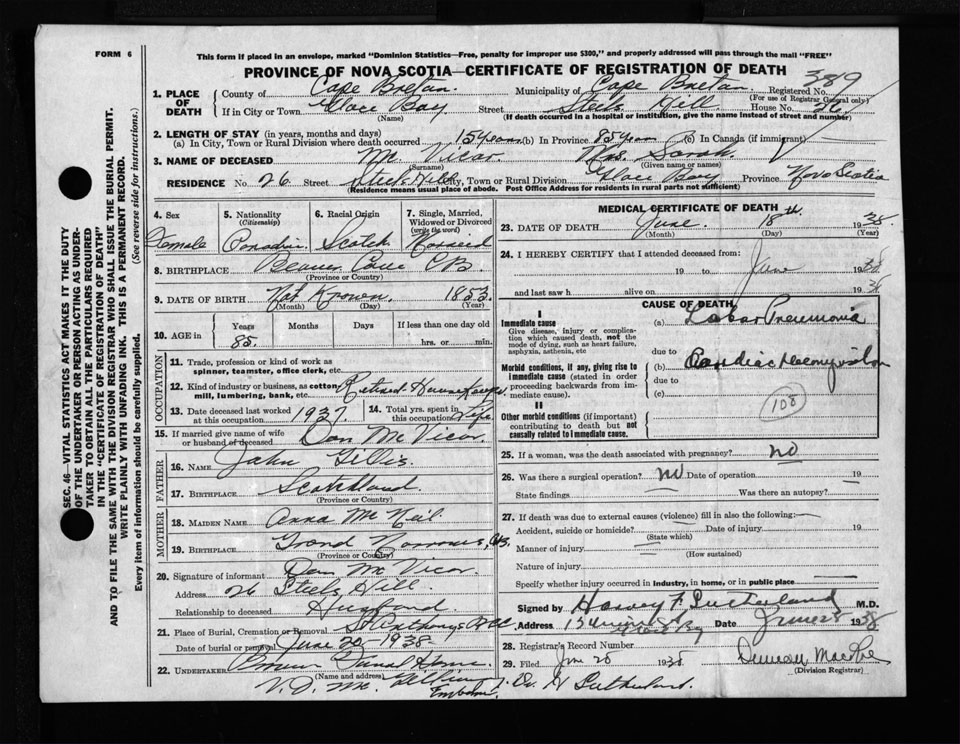 FORM 6
This form if placed in an envelope, marked "Dominion Statistics—Free, penalty for improper use $300," and properly addressed will pass through the mail "FREE"
PROVINCE OF NOVA SCOTIA—CERTIFICATE OF REGISTRATION OF DEATH
389
1. PLACE OF DEATH
County of Cape Breton Municipality of Cape Breton Registered No.
(For use of Registrar General only)
If in City or Town Glace Bay Street Steels Hill House No. 26
(Name) (If death occurred in a hospital or institution, give the name instead of street and number)
2. LENGTH OF STAY (in years, months and days)
(a) In City, Town or Rural Division where death occurred 15 years (b) In Province 85 years (c) In Canada (if immigrant)
3. NAME OF DECEASED Mc Vicar Mrs. Sarah
(Surname) (Given name or names)
RESIDENCE No. 26 Street Steels Hill City, Town or Rural Division Glace Bay Province Nova Scotia
(Residence means usual place of abode. Post Office Address for residents in rural parts not sufficient)
4. Sex Female
5. Nationality (Citizenship) Canadian
6. Racial Origin Scotch
7. Single, Married, Widowed or Divorced (write the word) Married
8. BIRTHPLACE Beaver Cove CB
(Province or Country)
9. DATE OF BIRTH Not Known 1853
(Month) (Day) (Year)
10. AGE in Years 85 Months Days If less than one day old hrs. or min.
OCCUPATION
11. Trade, profession or kind of work as spinner, teamster, office clerk, etc.
12. Kind of industry or business, as cotton mill, lumbering, bank, etc. Retired
13. Date deceased last worked at this occupation 1937
14. Total yrs. spent in this occupation Life
15. If married give name of wife or husband of deceased Dan Mc Vicar
FATHER
16. NAME John Gillis
17. BIRTHPLACE Scotland
(Province or Country)
MOTHER
18. MAIDEN NAME Anna Mc Neil
19. BIRTHPLACE Grand Narrows,
(Province or Country)
20. Signature of informant Dan Mc Vicar
Address 26 Steels Hill
Relationship to deceased Husband
21. Place of Burial, Cremation or Removal St Anthonys
Date of burial or removal June 20 - 1938
22. UNDERTAKER
(Name and address)
MEDICAL CERTIFICATE OF DEATH
23. DATE OF DEATH June 18th 1938
(Month) (Day) (Year)
24. I HEREBY CERTIFY that I attended deceased from:
19 to June 1938
and last saw h alive on 19
CAUSE OF DEATH
I
Immediate cause
Give disease, injury or complication which caused death, not the mode of dying, such as heart failure, asphyxia, asthenia, etc
(a) Lobar Pneumonia
due to
Morbid conditions, if any, giving rise to immediate cause (stated in order proceeding backwards from immediate cause).
(b) Cardiac
due to
(c)
108
II
Other morbid conditions (if important) contributing to death but not causally related to immediate cause.
25. If a woman, was the death associated with pregnancy? no
26. Was there a surgical operation? no Date of operation 19
State findings Was there an autopsy?
27. If death was due to external causes (violence) fill in also the following:
Accident, suicide or homicide? Date of injury 19
(State which)
Manner of injury
(How sustained)
Nature of injury
Specify whether injury occurred in industry, in home, or in public place
Signed by Harvey F. Sutherland M.D.
Address Date June 1938
28. Registrar's Record Number
29. Filed June 20 1938 Duncan
(Division Registrar)
Dr. H Sutherland.
SEC. 46—VITAL STATISTICS ACT MAKES IT THE DUTY OF THE UNDERTAKER OR PERSON ACTING AS UNDERTAKER TO OBTAIN ALL THE PARTICULARS REQUIRED IN THE "CERTIFICATE OF REGISTRATION OF DEATH"
AND TO FILE THE SAME WITH THE DIVISION REGISTRAR WHO SHALL ISSUE THE BURIAL PERMIT.
WRITE PLAINLY WITH UNFADING INK. THIS IS A PERMANENT RECORD.
Every item of information should be carefully supplied. (See reverse side for instructions.)